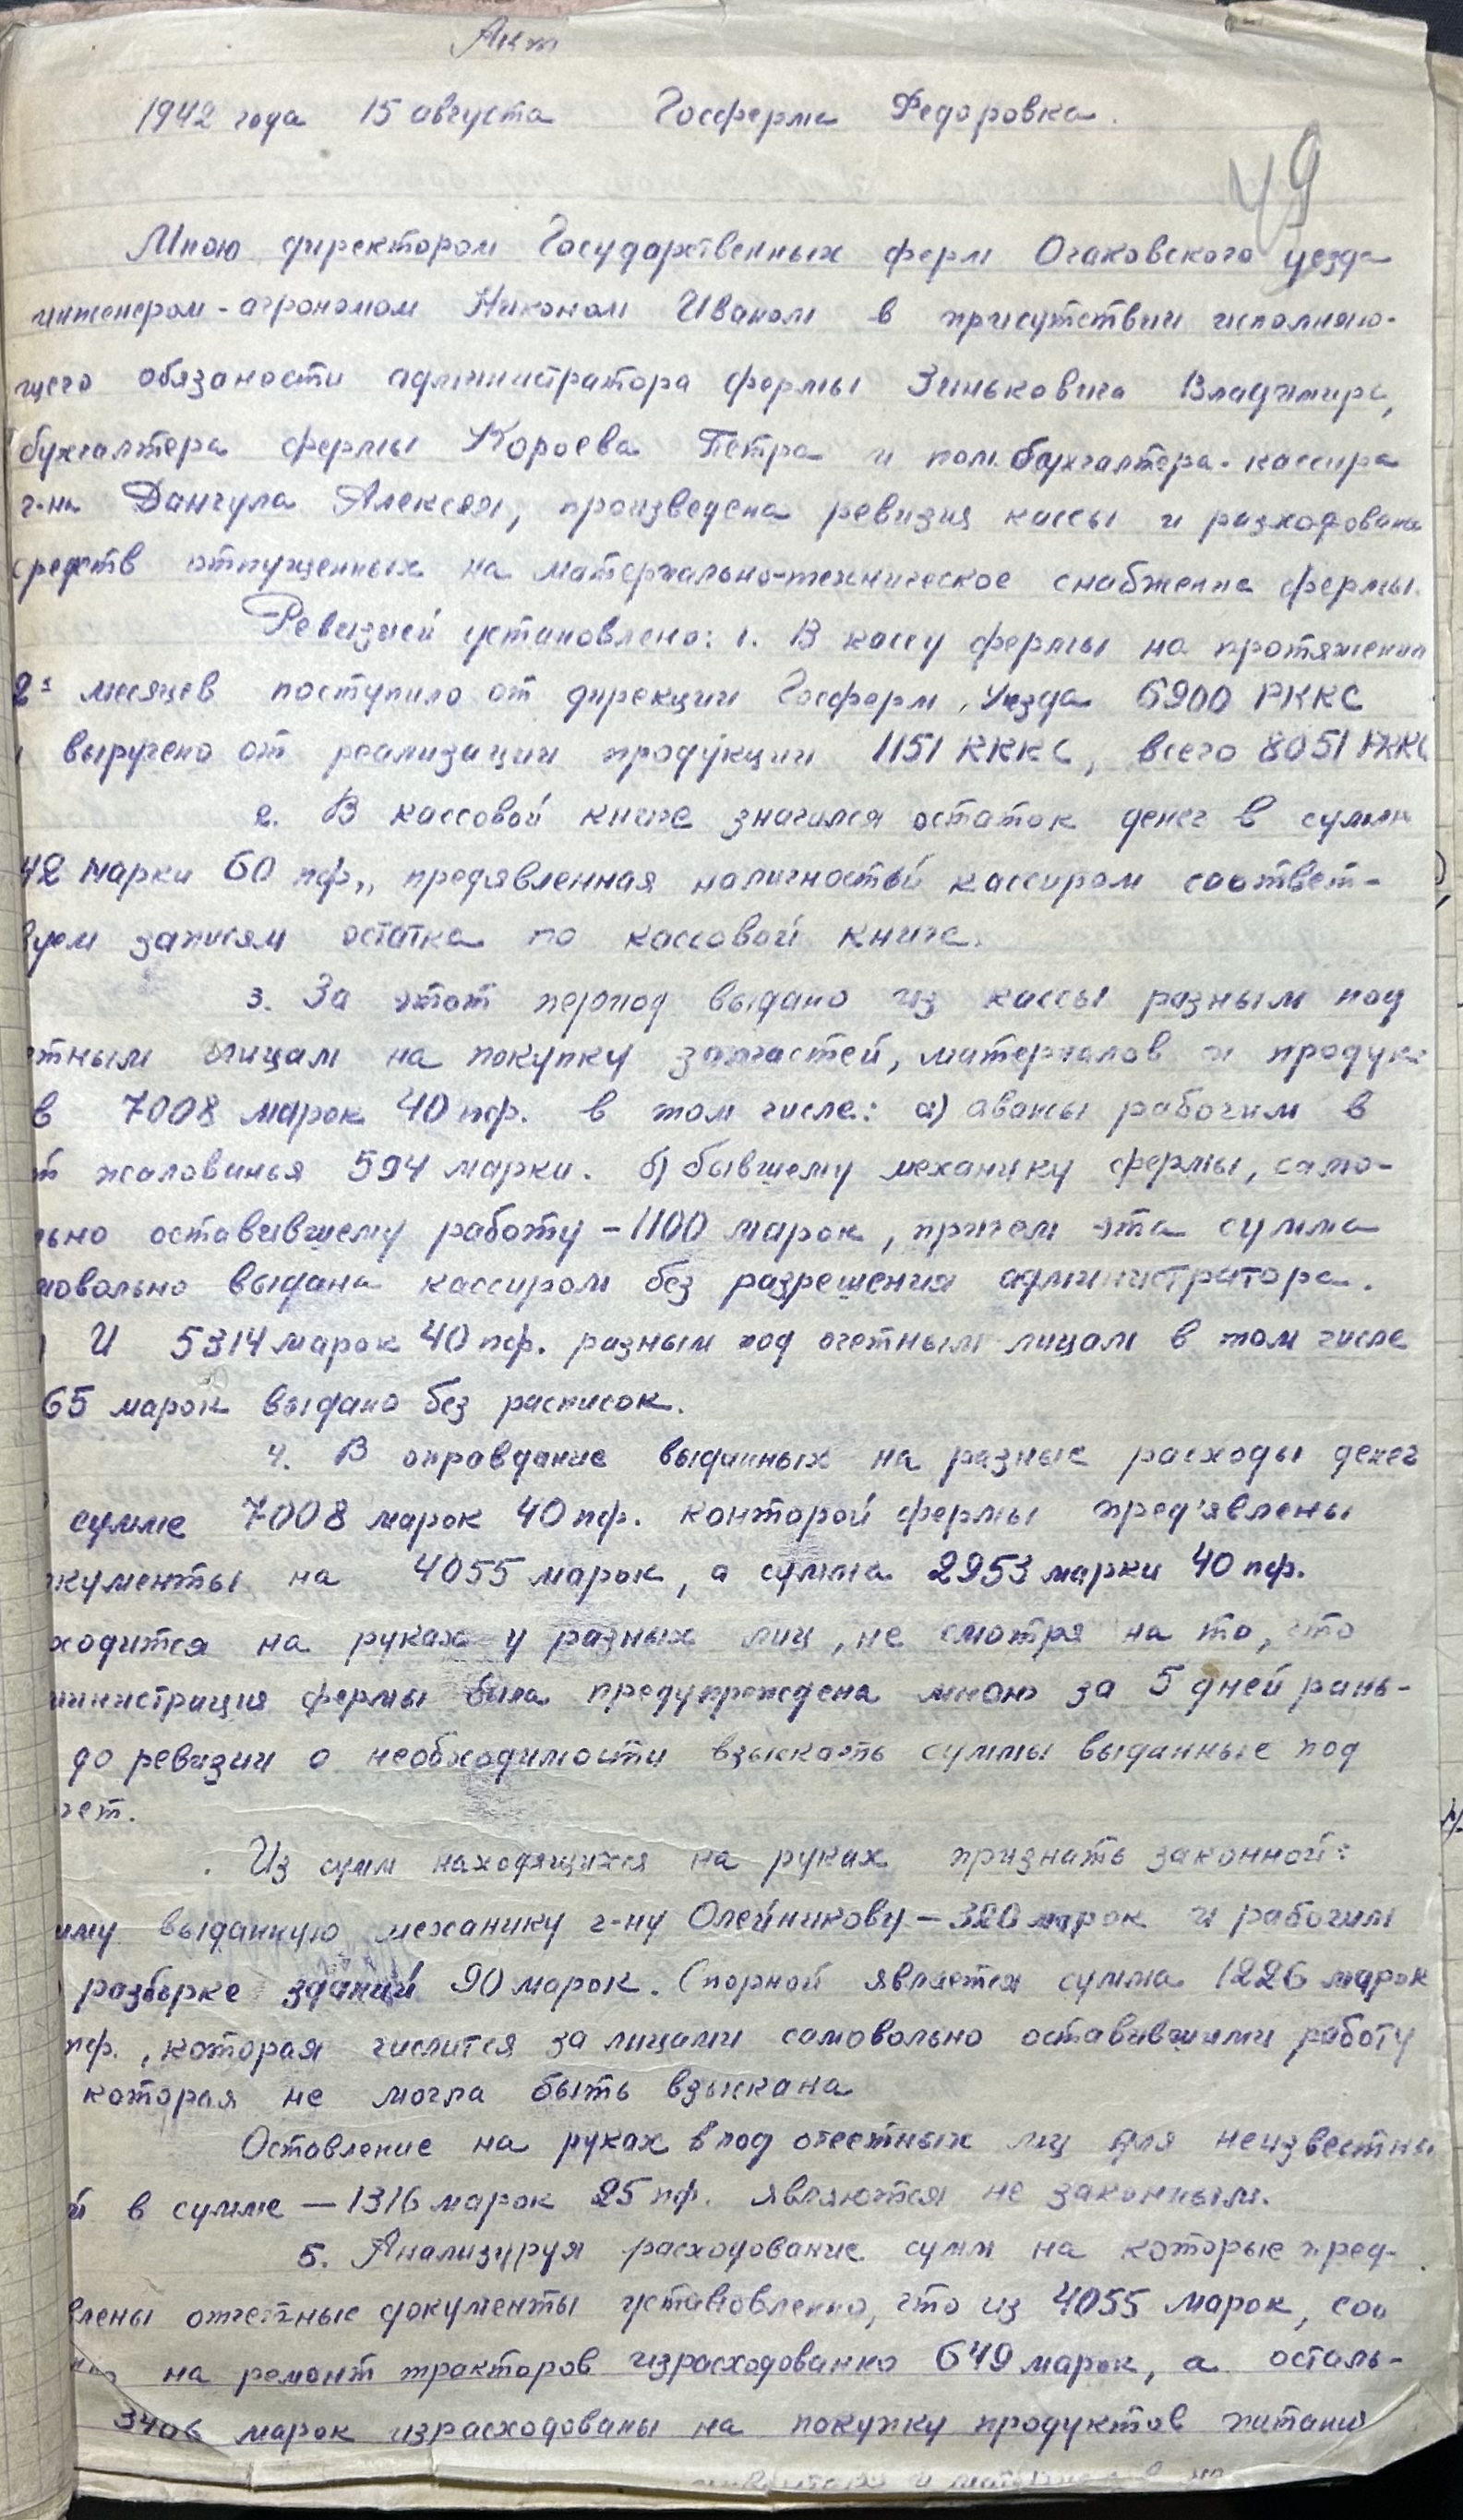 Акт
1942 года 15 августа Госферма Федоровка.
49
Мною директором Государственных ферм Очаковского уезда
инженером-агрономом Никоном Иваном в присутствии исполняю-
щего обязаности администратора фермы Зиньковича Владимира,
бухгалтера фермы Короева Петра и пом. бухгалтера-кассира
г-на Данчула Алексея, произведена ревизия кассы и разходована
средств отпущенных на материально-техническое снабжение фермы.
Ревизией установлено: 1. В кассу фермы на протяжении
2х месяцев поступило от дирекции Госферм Уезда 6900 РККС
и выручено от реализации продукции 1151 РККС, всего 8051 РККС
2. В кассовой книге значился остаток денег в сумме
42 марки 60 пф., предявленная наличностью кассиром соответ-
вуем записям остатка по кассовой книге.
3. За этот период выдано из кассы разным под
етным лицам на покупку запчастей, материалов и продук-
в 7008 марок 40 пф. в том числе: а) авансы рабочим в
т жалованья 594 марки. б) бывшему механику фермы, само-
льно оставившему работу – 1100 марок, причем эта сумма
мовольно выдана кассиром без разрешения администратора.
) И 5314 марок 40 пф. разным под очетным лицам в том числе
65 марок выдано без расписок.
4. В оправдание выданных на разные расходы денег
сумме 7008 марок 40 пф. конторой фермы пред'явлены
кументы на 4055 марок, а сумма 2953 марки 40 пф.
ходится на руках у разных лиц, не смотря на то, что
министрация фермы была предупреждена мною за 5 дней рань-
до ревизии о необходимости взыскать суммы выданные под
чет.
Из сумм находящихся на руках признать законной:
мму выданную механику г-ну Олейникову – 320 марок и рабочим
разборке зданий 90 марок. Спорной является сумма 1226 марок
пф., которая числится за лицами самовольно оставившими работу
которая не могла быть взыскана
Оставление на руках в под отчетных лиц для неизвестны
й в сумме – 1316 марок 25 пф. являются не законным.
5. Анализируя расходование сумм на которые пред-
влены отчетные документы установленно, что из 4055 марок, соо
но на ремонт тракторов израсходованно 649 марок, а осталь-
3406 марок израсходованы на покупку продуктов питания